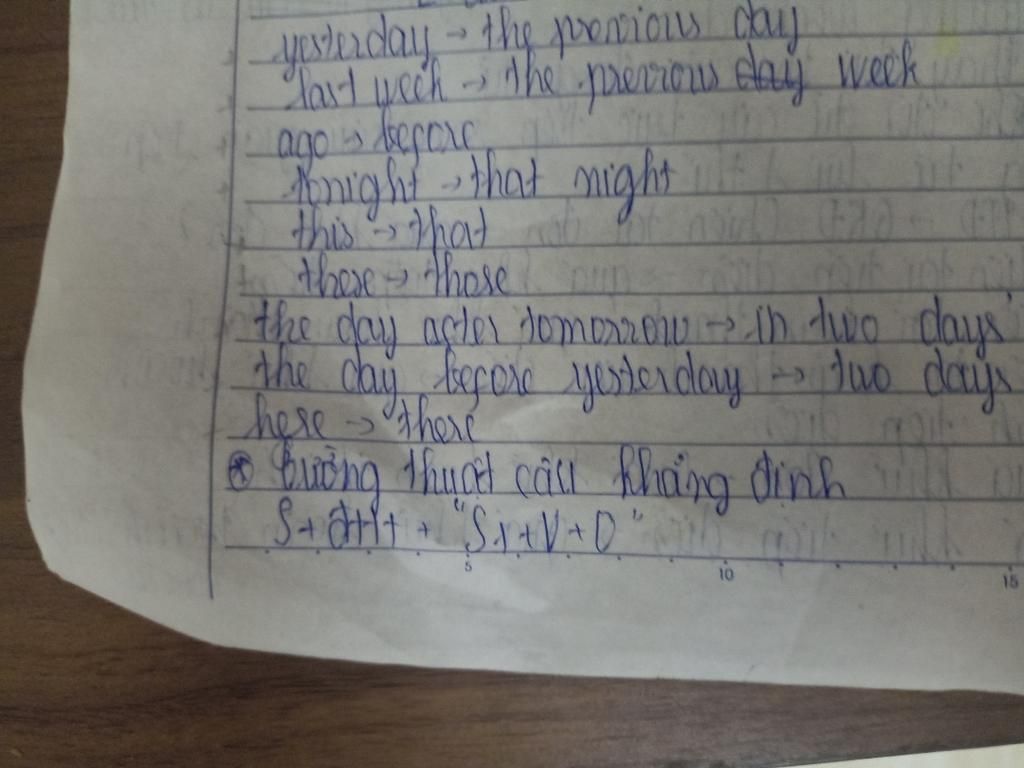 yesterday → the previous day
last week → the previous day week
ago → before
tonight → that night
this → that
these → those
the day after tomorrow → in two days'
the day before yesterday → two days
here → there
tường thuật câu khẳng định
S + + "S + V + O"
5 10 15